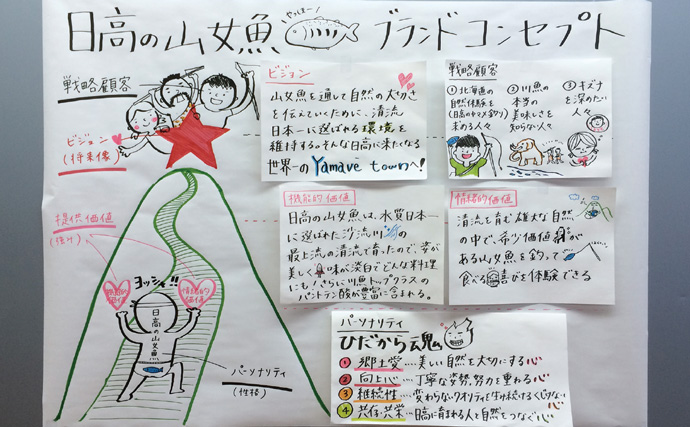 日高の山女魚 ブランドコンセプト
やっしょー
戦略顧客
ビジョン
(将来像
提供価値
(強み)
ヨッシャ!!
機能的
価値
情緒的
価値
日高の山女魚
パーソナリティ
(性格)
ビジョン
山女魚を通して自然の大切さ
を伝えていくために、清流
日本一に選ばれる環境を
維持する。そんな日高に来たくなる
世界一の Yamave townへ!
戦略顧客
①北海道の
自然体験を
(日高のヤマメ釣り)
求める人々
②川魚の
本当の
美味しさを
知らない人々
③キズナ
を深めたい
人々
機能的価値
日高の山女魚は、水質日本一
に選ばれた沙流川
の
最上流の清流で育ったので、姿が
美しく 味が淡白でどんな料理
にも!さらに川魚トップクラスの
パントテン酸が豊富に含まれる。
情緒的価値
清流を育む雄大な自然
の中で、希少価値 が
ある山女魚を釣って
食べる 喜びを体験できる
パーソナリティ
ひだから魂
1 郷土愛…美しい自然を大切にする心
2 向上心…丁寧な姿勢、努力を重ねる心
3 継続性…変わらないクオリティを生み続けるくじけない心
4 共存・共栄…日高に育まれる人と自然をつなぐ心